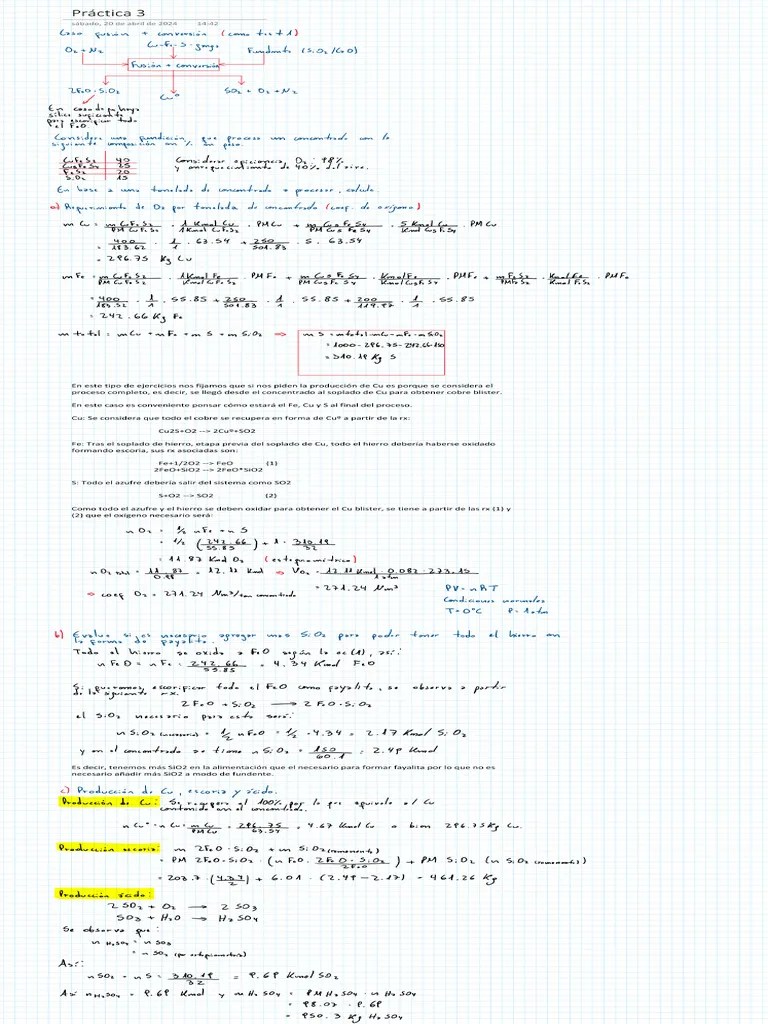 Práctica 3
sábado, 20 de abril de 2024 14:42
Caso fusión + conversión (como tot + 1)
O2 + N2 Cu-Fe-S-ganga Fundente (SiO2/CaO)
Fusión + conversión
2FeO·SiO2 Cu° SO2 + O2 + N2
En caso de q haya
sílice suficiente
para escorificar todo
el FeO
Considere una fundición, que procesa un concentrado con la
siguiente composición en % en peso.
CuFeS2 40
Cu5FeS4 25
FeS2 20
SiO2 15
Considerar eficiencia O2: 98%
y enriquecimiento de 40% del aire.
En base a una tonelada de concentrado a procesar, calcule.
a) Requerimiento de O2 por tonelada de concentrado (coef. de oxígeno)
m Cu = m CuFeS2 / PM CuFeS2 · 1 Kmol Cu / Kmol CuFeS2 · PM Cu + m Cu5FeS4 / PM Cu5FeS4 · 5 Kmol Cu / Kmol Cu5FeS4 · PM Cu
= 400 / 183.52 · 1 / 1 · 63.54 + 250 / 501.83 · 5 · 63.54
= 296.75 Kg Cu
m Fe = m CuFeS2 / PM CuFeS2 · 1 Kmol Fe / Kmol CuFeS2 · PM Fe + m Cu5FeS4 / PM Cu5FeS4 · Kmol Fe / Kmol Cu5FeS4 · PM Fe + m FeS2 / PM FeS2 · Kmol Fe / Kmol FeS2 · PM Fe
= 400 / 183.52 · 1 / 1 · 55.85 + 250 / 501.83 · 1 / 1 · 55.85 + 200 / 119.97 · 1 / 1 · 55.85
= 242.66 Kg Fe
m total = m Cu + m Fe + m S + m SiO2 ⇒ m S = m total - m Cu - m Fe - m SiO2
= 1000 - 296.75 - 242.66 - 150
= 310.19 Kg S
En este tipo de ejercicios nos fijamos que si nos piden la producción de Cu es porque se considera el
proceso completo, es decir, se llegó desde el concentrado al soplado de Cu para obtener cobre blister.
En este caso es conveniente ponsar cómo estará el Fe, Cu y S al final del proceso.
Cu: Se considera que todo el cobre se recupera en forma de Cuº a partir de la rx:
Cu2S+O2 --> 2Cuº+SO2
Fe: Tras el soplado de hierro, etapa previa del soplado de Cu, todo el hierro debería haberse oxidado
formando escoria, sus rx asociadas son:
Fe+1/2O2 --> FeO (1)
2FeO+SiO2 --> 2FeO*SiO2
S: Todo el azufre debería salir del sistema como SO2
S+O2 --> SO2 (2)
Como todo el azufre y el hierro se deben oxidar para obtener el Cu blister, se tiene a partir de las rx (1) y
(2) que el oxígeno necesario será:
n O2 = 1/2 n Fe + n S
= 1/2 (242.66 / 55.85) + 1 · 310.19 / 32
= 11.87 Kmol O2 (estequiométrico)
n O2 real = 11.87 / 0.98 = 12.11 Kmol ⇒ V O2 = 12.11 Kmol · 0.082 · 273.15 / 1 atm
= 271.24 Nm³
⇒ coef O2 = 271.24 Nm³/ton concentrado
PV = nRT
Condiciones normales
T = 0°C P = 1 atm
b) Evalúe si es necesario agregar más SiO2 para poder tener todo el hierro en
la forma de fayalita.
Todo el hierro se oxida a FeO según la ec (1), así:
n FeO = n Fe = 242.66 / 55.85 = 4.34 Kmol FeO
Si queremos escorificar todo el FeO como fayalita, se observa a partir
de la siguiente rx.
2FeO + SiO2 → 2FeO·SiO2
el SiO2 necesario para esto será:
n SiO2 (necesario) = 1/2 n FeO = 1/2 · 4.34 = 2.17 Kmol SiO2
y en el concentrado se tiene n SiO2 = 150 / 60.1 = 2.49 Kmol
Es decir, tenemos más SiO2 en la alimentación que el necesario para formar fayalita por lo que no es
necesario añadir más SiO2 a modo de fundente.
c) Producción de Cu, escoria y ácido.
Producción de Cu: Se recupera el 100% por lo que equivale al Cu
contenido en el concentrado.
n Cu° = n Cu = m Cu / PM Cu = 296.75 / 63.54 = 4.67 Kmol Cu o bien 296.75 Kg Cu.
Producción escoria: m 2FeO·SiO2 + m SiO2 (remanente)
= PM 2FeO·SiO2 · (n FeO · 2FeO·SiO2 / 2FeO) + PM SiO2 (n SiO2 (remanente))
= 203.7 · (4.34 / 2) + 6.01 · (2.49 - 2.17) = 461.26 Kg
Producción ácido:
2 SO2 + O2 → 2 SO3
SO3 + H2O → H2SO4
Se observa que:
n H2SO4 = n SO3
= n SO2 (por estequiometría)
Así:
n SO2 = n S = 310.19 / 32 = 9.69 Kmol SO2
Así n H2SO4 = 9.69 Kmol y m H2SO4 = PM H2SO4 · n H2SO4
= 98.07 · 9.69
= 950.3 Kg H2SO4